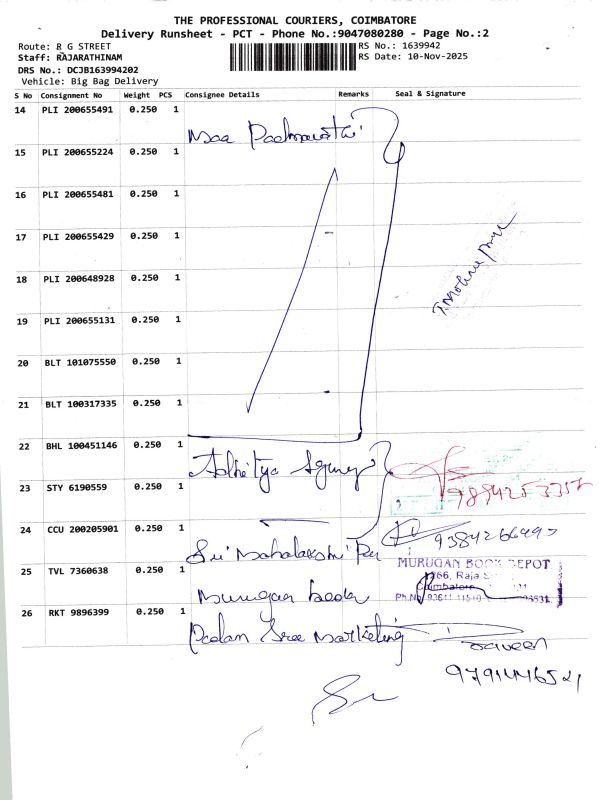 THE PROFESSIONAL COURIERS, COIMBATORE
Delivery Runsheet - PCT - Phone No.:9047080280 - Page No.:2
Route: R G STREET
RS No.: 1639942
Staff: RAJARATHINAM
RS Date: 10-Nov-2025
DRS No.: DCJB163994202
Vehicle: Big Bag Delivery
S No Consignment No Weight PCS Consignee Details Remarks Seal & Signature
14 PLI 200655491 0.250 1
Maa
15 PLI 200655224 0.250 1
16 PLI 200655481 0.250 1
17 PLI 200655429 0.250 1
18 PLI 200648928 0.250 1
19 PLI 200655131 0.250 1
20 BLT 101075550 0.250 1
21 BLT 100317335 0.250 1
22 BHL 100451146 0.250 1
Adhitya Agency
23 STY 6190559 0.250 1
24 CCU 200205901 0.250 1
Sri Mahalakshmi
25 TVL 7360638 0.250 1
MURUGAN BOOK DEPOT
Raja
Coimbatore
Murugan book
26 RKT 9896399 0.250 1
Sree Marketing